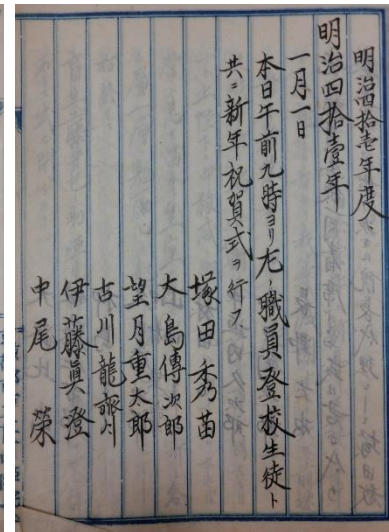 明治四拾壱年度、
明治四拾壹年
一月一日
本日午前九時ヨリ左ノ職員登校生徒ト
共ニ新年祝賀式ヲ行フ、
塚田秀苗
大島傳次郎
望月重太郎
古川龍
伊藤眞澄
中尾榮